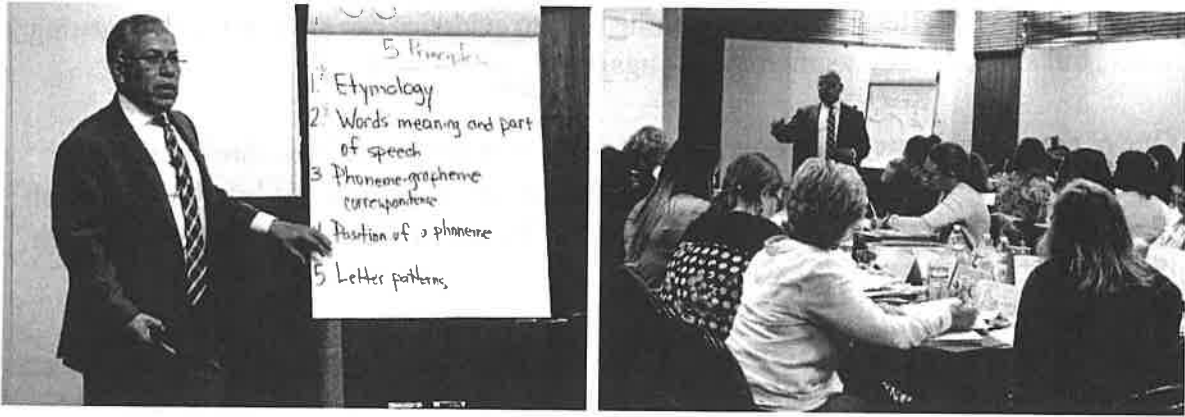 5 Principles
1. Etymology
2. Words meaning and part
of speech
3 Phoneme-grapheme
correspondence
4 Position of a phoneme
5 Letter patterns,